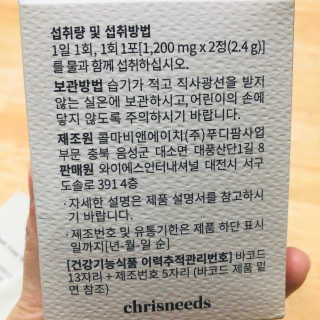 섭취량 및 섭취방법
1일 1회, 1회 1포[1,200 mg x 2정(2.4 g)]
를 물과 함께 섭취하십시오.
보관방법 습기가 적고 직사광선을 받지
않는 실온에 보관하시고, 어린이의 손에
닿지 않도록 주의하시기 바랍니다.
제조원 콜마비앤에이치(주)푸디팜사업
부문 충북 음성군 대소면 대풍산단1길 8
판매원 와이에스인터내셔널 대전시 서구
도솔로 391 4층
· 자세한 설명은 제품 설명서를 참고하시
기 바랍니다.
· 제조번호 및 유통기한은 제품 하단 표시
일까지[년·월·일 순]
[건강기능식품 이력추적관리번호] 바코드
13자리 + 제조번호 5자리 (바코드 제품 밑
면 참조)
chrisneeds